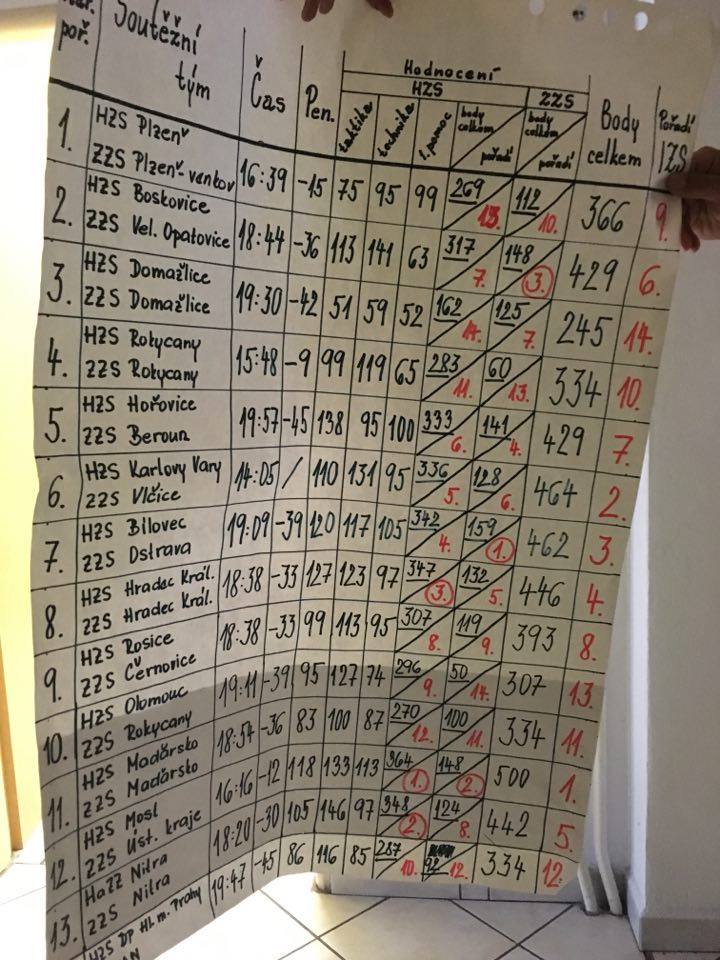 poř.
Soutěžní
tým
Čas
Pen.
Hodnocení
HZS
ZZS
taktika
technika
1. pomoc
body celkem
pořadí
body celkem
pořadí
Body
celkem
Pořadí
IZS
1. HZS Plzeň
ZZS Plzeň venkov 16:39 -15 75 95 99 269 13. 112 10. 366 9.
2. HZS Boskovice
ZZS Vel. Opatovice 18:44 -36 113 141 63 317 7. 148 3. 429 6.
3. HZS Domažlice
ZZS Domažlice 19:30 -42 51 59 52 162 14. 125 7. 245 14.
4. HZS Rokycany
ZZS Rokycany 15:48 -9 99 119 65 283 11. 60 13. 334 10.
5. HZS Hořovice
ZZS Beroun 19:57 -45 138 95 100 333 6. 141 4. 429 7.
6. HZS Karlovy Vary
ZZS Vlčice 14:05 / 110 131 95 336 5. 128 6. 464 2.
7. HZS Bílovec
ZZS Ostrava 19:09 -39 120 117 105 342 4. 159 1. 462 3.
8. HZS Hradec Král.
ZZS Hradec Král. 18:38 -33 127 123 97 347 3. 132 5. 446 4.
9. HZS Rosice
ZZS Černovice 18:38 -33 99 113 95 307 8. 119 9. 393 8.
10. HZS Olomouc
ZZS Rokycany 19:11 -39 95 127 74 296 9. 50 14. 307 13.
11. HZS Maďarsko
ZZS Maďarsko 18:54 -36 83 100 87 270 12. 100 11. 334 11.
12. HZS Most
ZZS Úst. kraje 16:16 -12 118 133 113 364 1. 148 2. 500 1.
13. HaZZ Nitra
ZZS Nitra 18:20 -30 105 146 97 348 2. 124 8. 442 5.
HZS DP Hl. m. Prahy 19:47 -45 86 116 85 287 10. 92 12. 334 12.